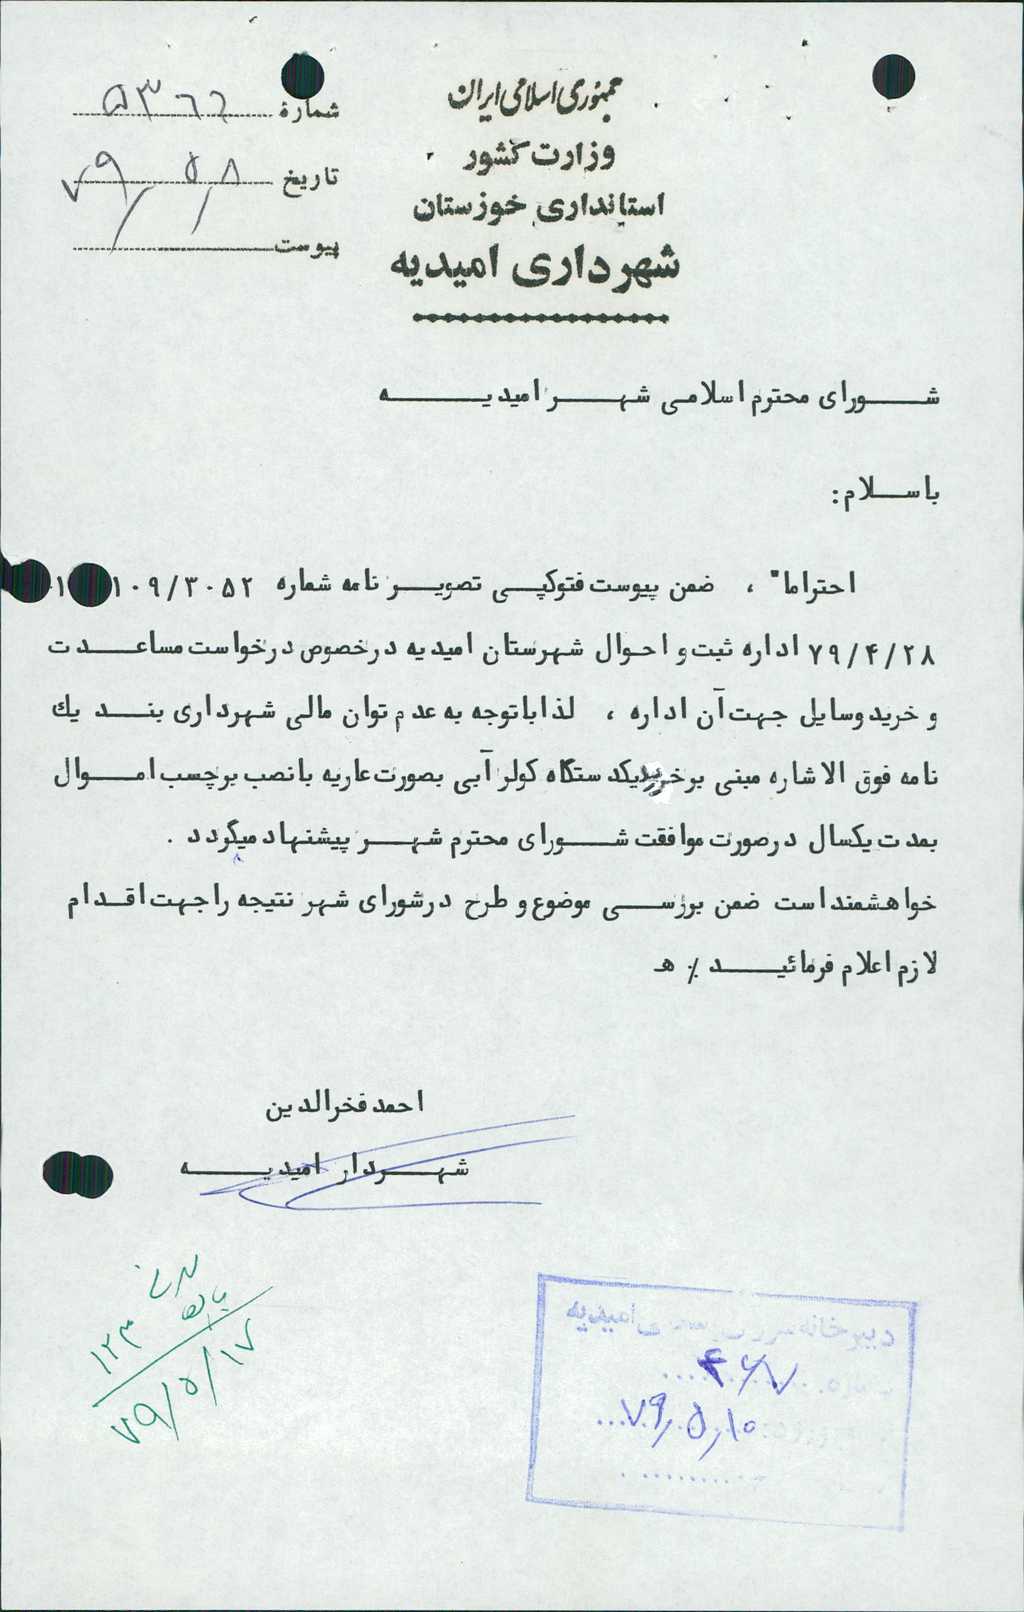 جمهوری اسلامی ایران
وزارت کشور
استانداری خوزستان
شهرداری امیدیه
شماره ۵۳۶۲
تاریخ ۷۹/۵/۸
پیوست
شورای محترم اسلامی شهر امیدیه
باسلام:
احتراما" ، ضمن پیوست فتوکپی تصویر نامه شماره ۱۰۹/۳۰۵۲
۷۹/۴/۲۸ اداره ثبت و احوال شهرستان امیدیه درخصوص درخواست مساعدت
و خرید وسایل جهت آن اداره ، لذا باتوجه به عدم توان مالی شهرداری بند یک
نامه فوق الاشاره مبنی بر خرید یکدستگاه کولر آبی بصورت عاریه با نصب برچسب اموال
بمدت یکسال درصورت موافقت شورای محترم شهر پیشنهاد میگردد .
خواهشمند است ضمن بررسی موضوع و طرح درشورای شهر نتیجه را جهت اقدام
لازم اعلام فرمائید ٪ ه
احمد فخرالدین
شهردار امیدیه
۱۲۳
۷۹/۵/۱۷
دبیرخانه امیدیه
۴۶۷
۷۹,۵,۱۰